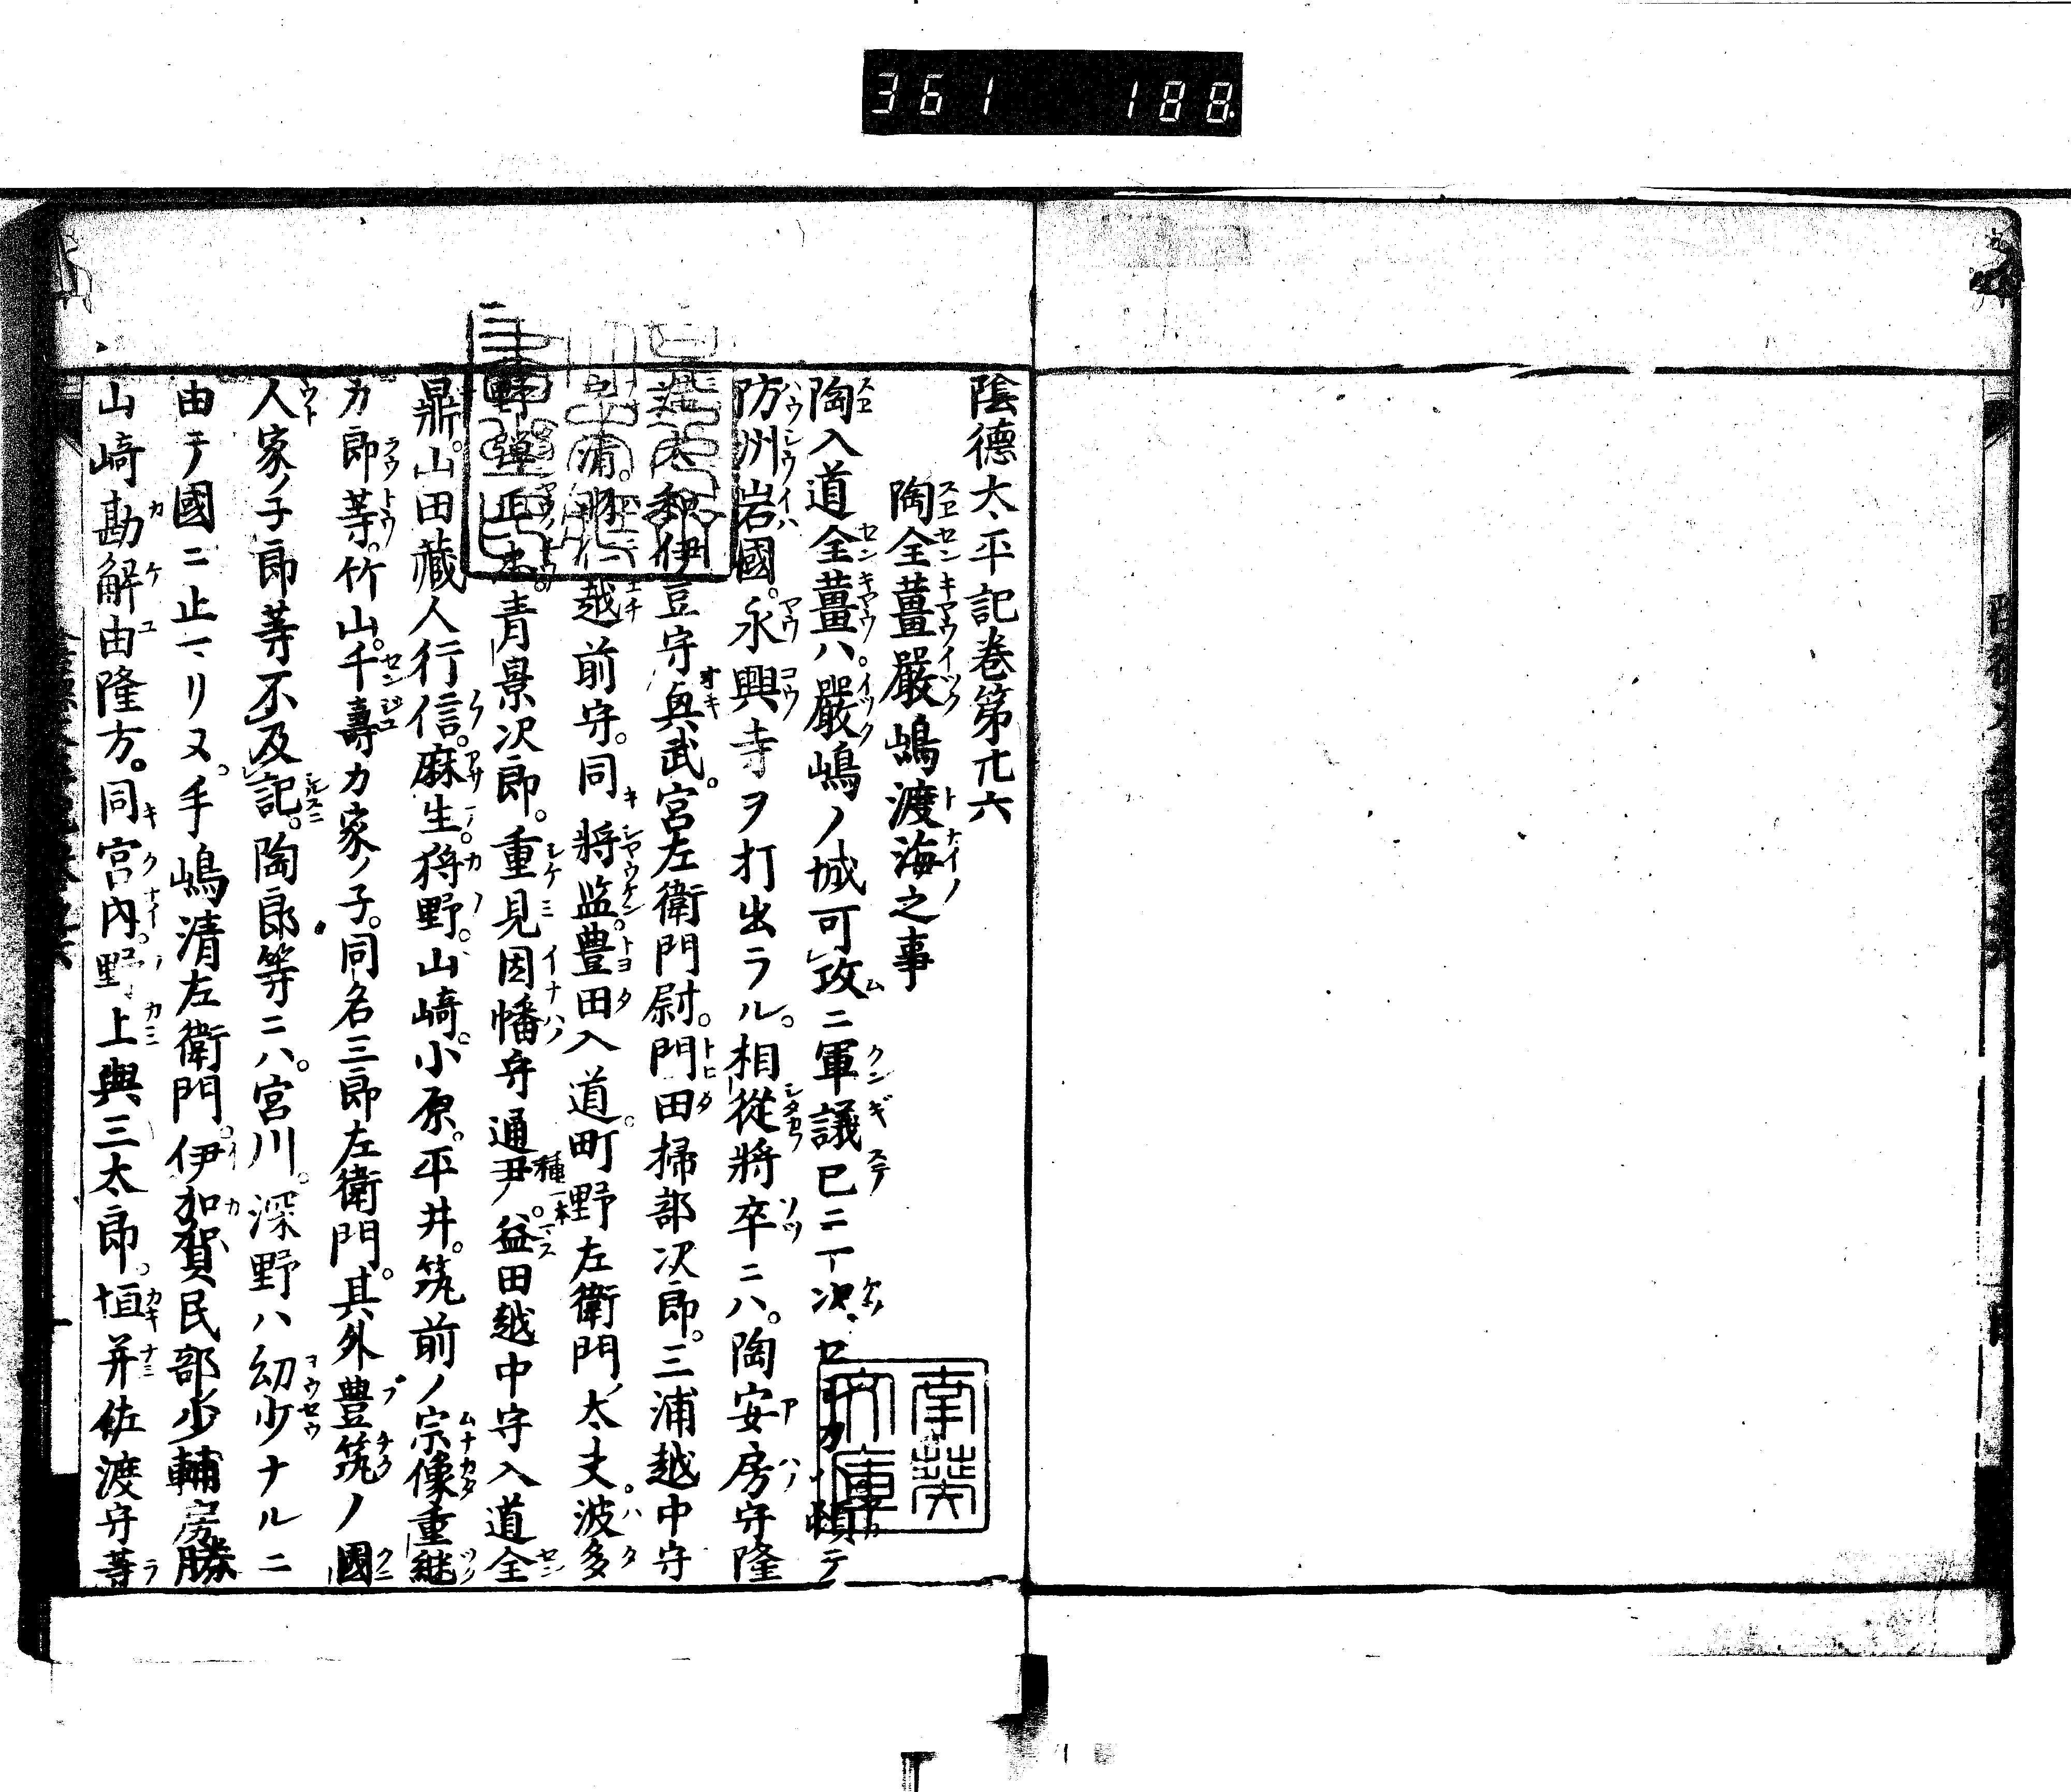 361 188
陰德太平記巻第廿六
陶全薑嚴嶋渡海之事
陶入道全薑ハ嚴嶋ノ城可攻ニ軍議已ニ一决セ 頼テ
防州岩國永興寺ヲ打出ラル。相從將卒ニハ。陶安房守隆
伊豆守奥武。宮左衛門尉。門田掃部次郎。三浦越中守
越前守。同將監。豊田入道。町野左衛門太夫。波多
野彈正忠。青景次郎。重見因幡守通尹。益田越中守入道全
鼎。山田藏人行信。麻生。狩野。山﨑。小原。平井。筑前ノ宗像重継
カ郎等。竹山。千壽カ家ノ子。同名三郎左衛門。其外豊筑ノ國
人家ノ子郎等不及記。陶郎等ニハ。宮川。深野ハ幼少ナルニ
由テ國ニ止マリヌ。手嶋清左衛門。伊加賀民部少輔房勝
山﨑勘解由隆方。同宮内。野上與三太郎。垣并佐渡守等